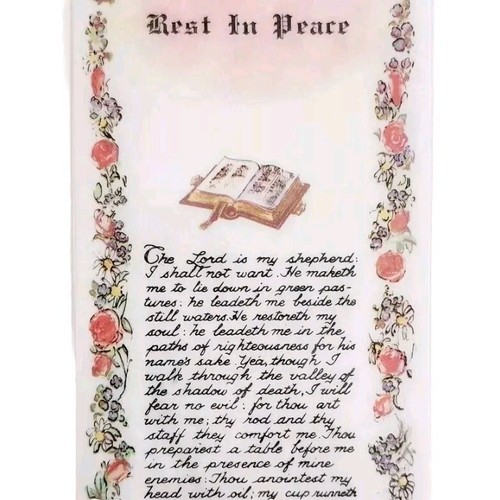 Rest In Peace
The Lord is my shepherd:
I shall not want. He maketh
me to lie down in green pas-
tures: he leadeth me beside the
still waters. He restoreth my
soul: he leadeth me in the
paths of righteousness for his
name's sake. Yea, though I
walk through the valley of
the shadow of death, I will
fear no evil: for thou art
with me; thy rod and thy
staff they comfort me. Thou
preparest a table before me
in the presence of mine
enemies: Thou anointest my
head with oil; my cup runneth